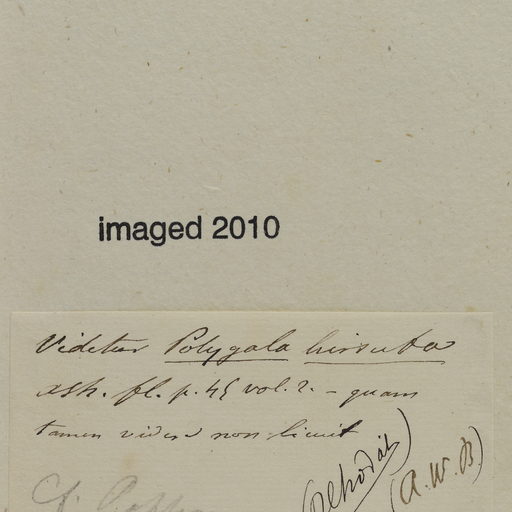 imaged 2010
Videtur Polygala hirsuta
ash. fl. p. 45 vol. 2. – quam
tamen videre non licuit
(Chodat)
(A.W.B.)
Cf.